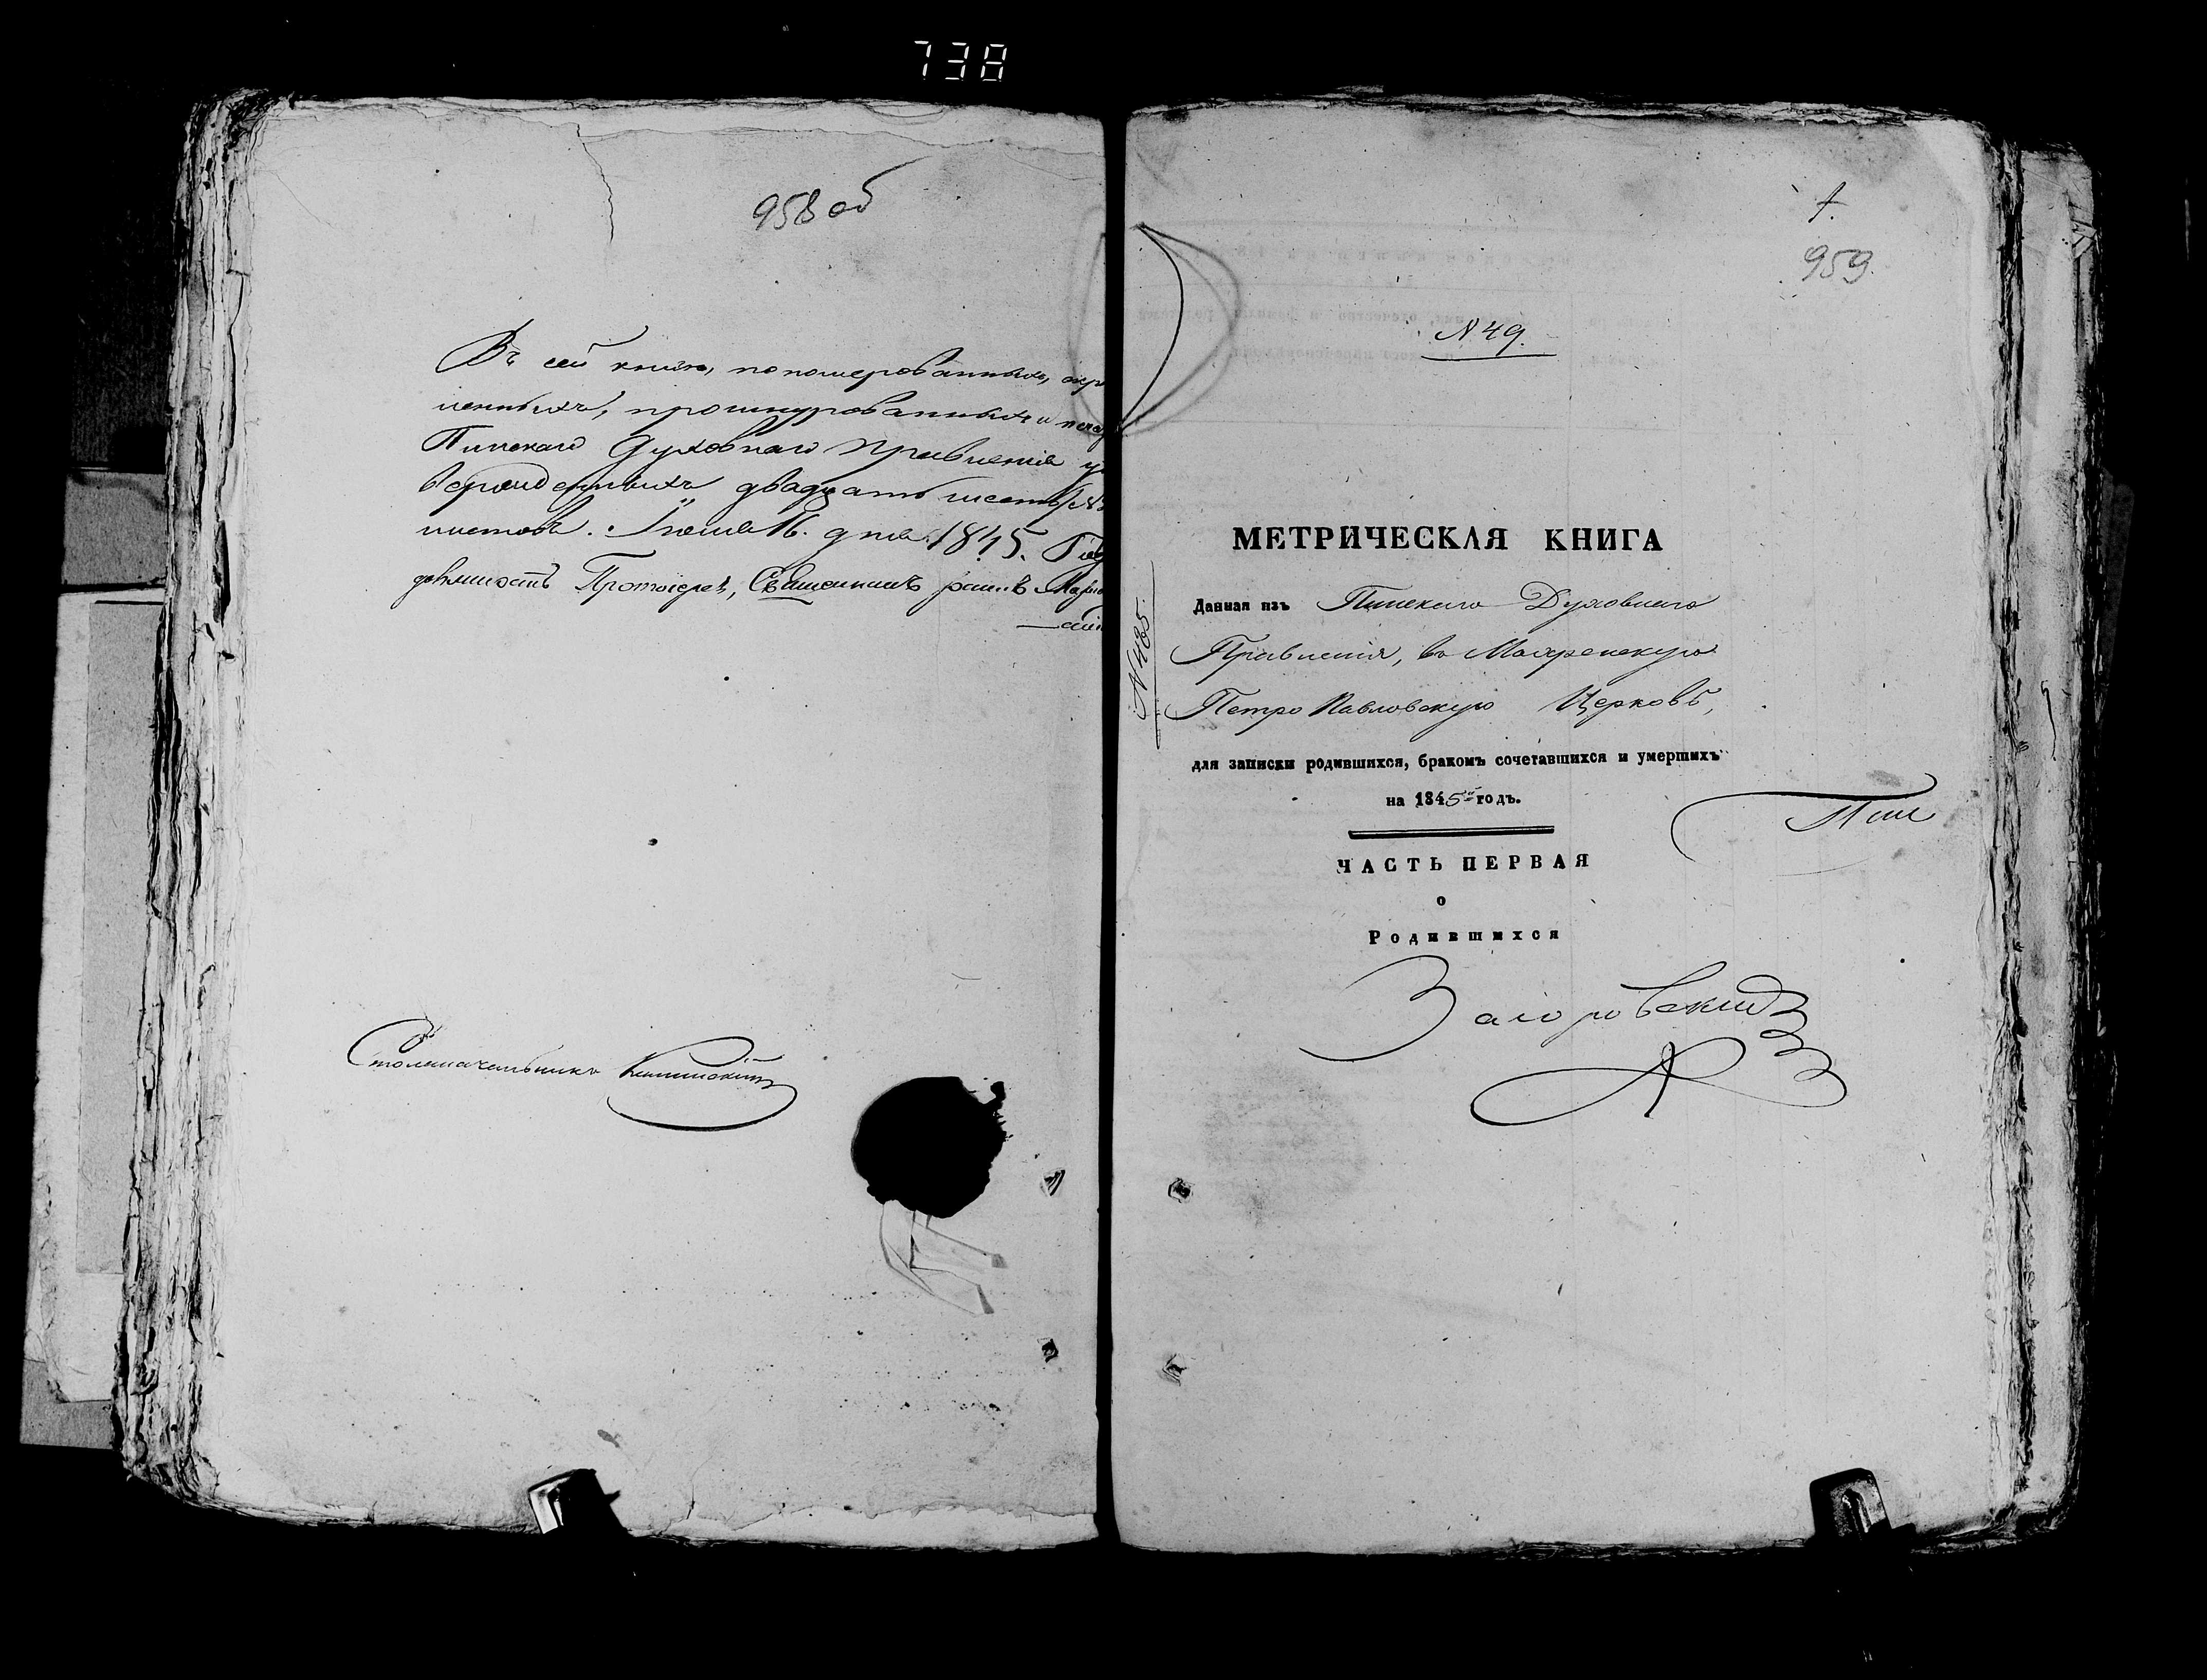 738
958 об
Въ сей книгѣ, пономерованныхъ, скрѣ
пленныхъ, прошнурованныхъ и печа
Пинскаго Духовнаго Правленія у
вержденныхъ двадцать шесть
листовъ. Іюля 16. дня 1845. Года
Протоіерей, Священникъ
Столоначальникъ
1.
959
N 49.
МЕТРИЧЕСКАЯ КНИГА
Данная изъ Пинскаго Духовнаго
Правленія, въ Мокренскую
Петро Павловскую Церковь,
для записки родившихся, бракомъ сочетавшихся и умершихъ
на 1845й годъ.
N 485.
Пин
ЧАСТЬ ПЕРВАЯ
о
Родившихся
Загоровскій